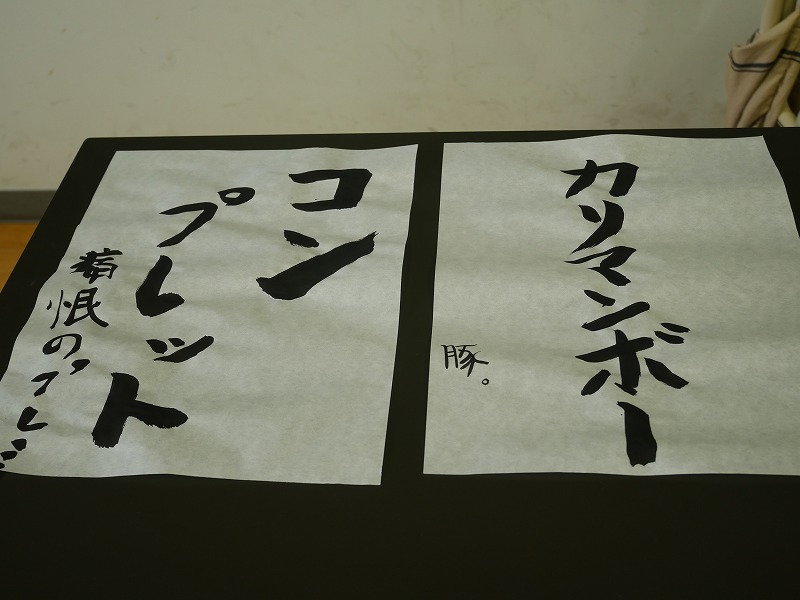 カソマンボー
豚。
コン
プレット
痛恨のプレミ